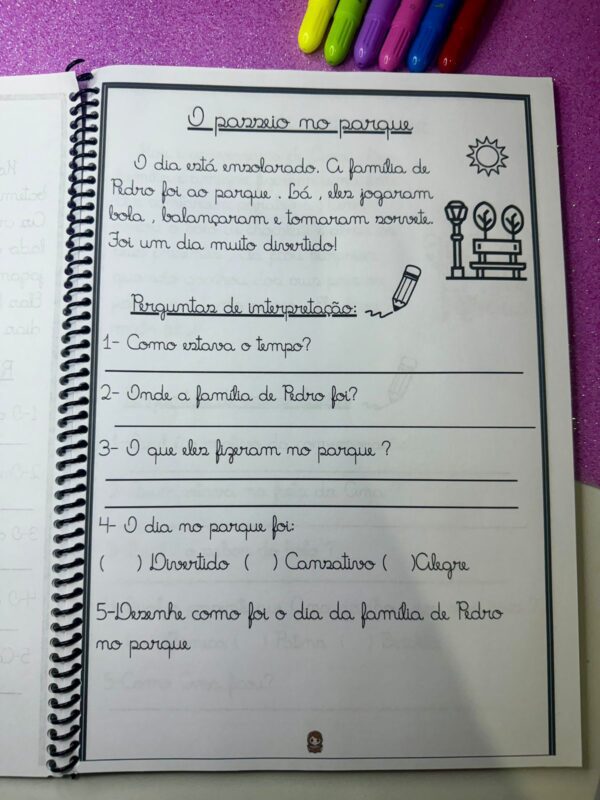 O passeio no parque
O dia está ensolarado. A família de
Pedro foi ao parque . Lá , eles jogaram
bola , balançaram e tomaram sorvete.
Foi um dia muito divertido!
Perguntas de interpretação:
1- Como estava o tempo?
2- Onde a família de Pedro foi?
3- O que eles fizeram no parque ?
4- O dia no parque foi:
( ) Divertido ( ) Cansativo ( )Alegre
5-Desenhe como foi o dia da família de Pedro
no parque